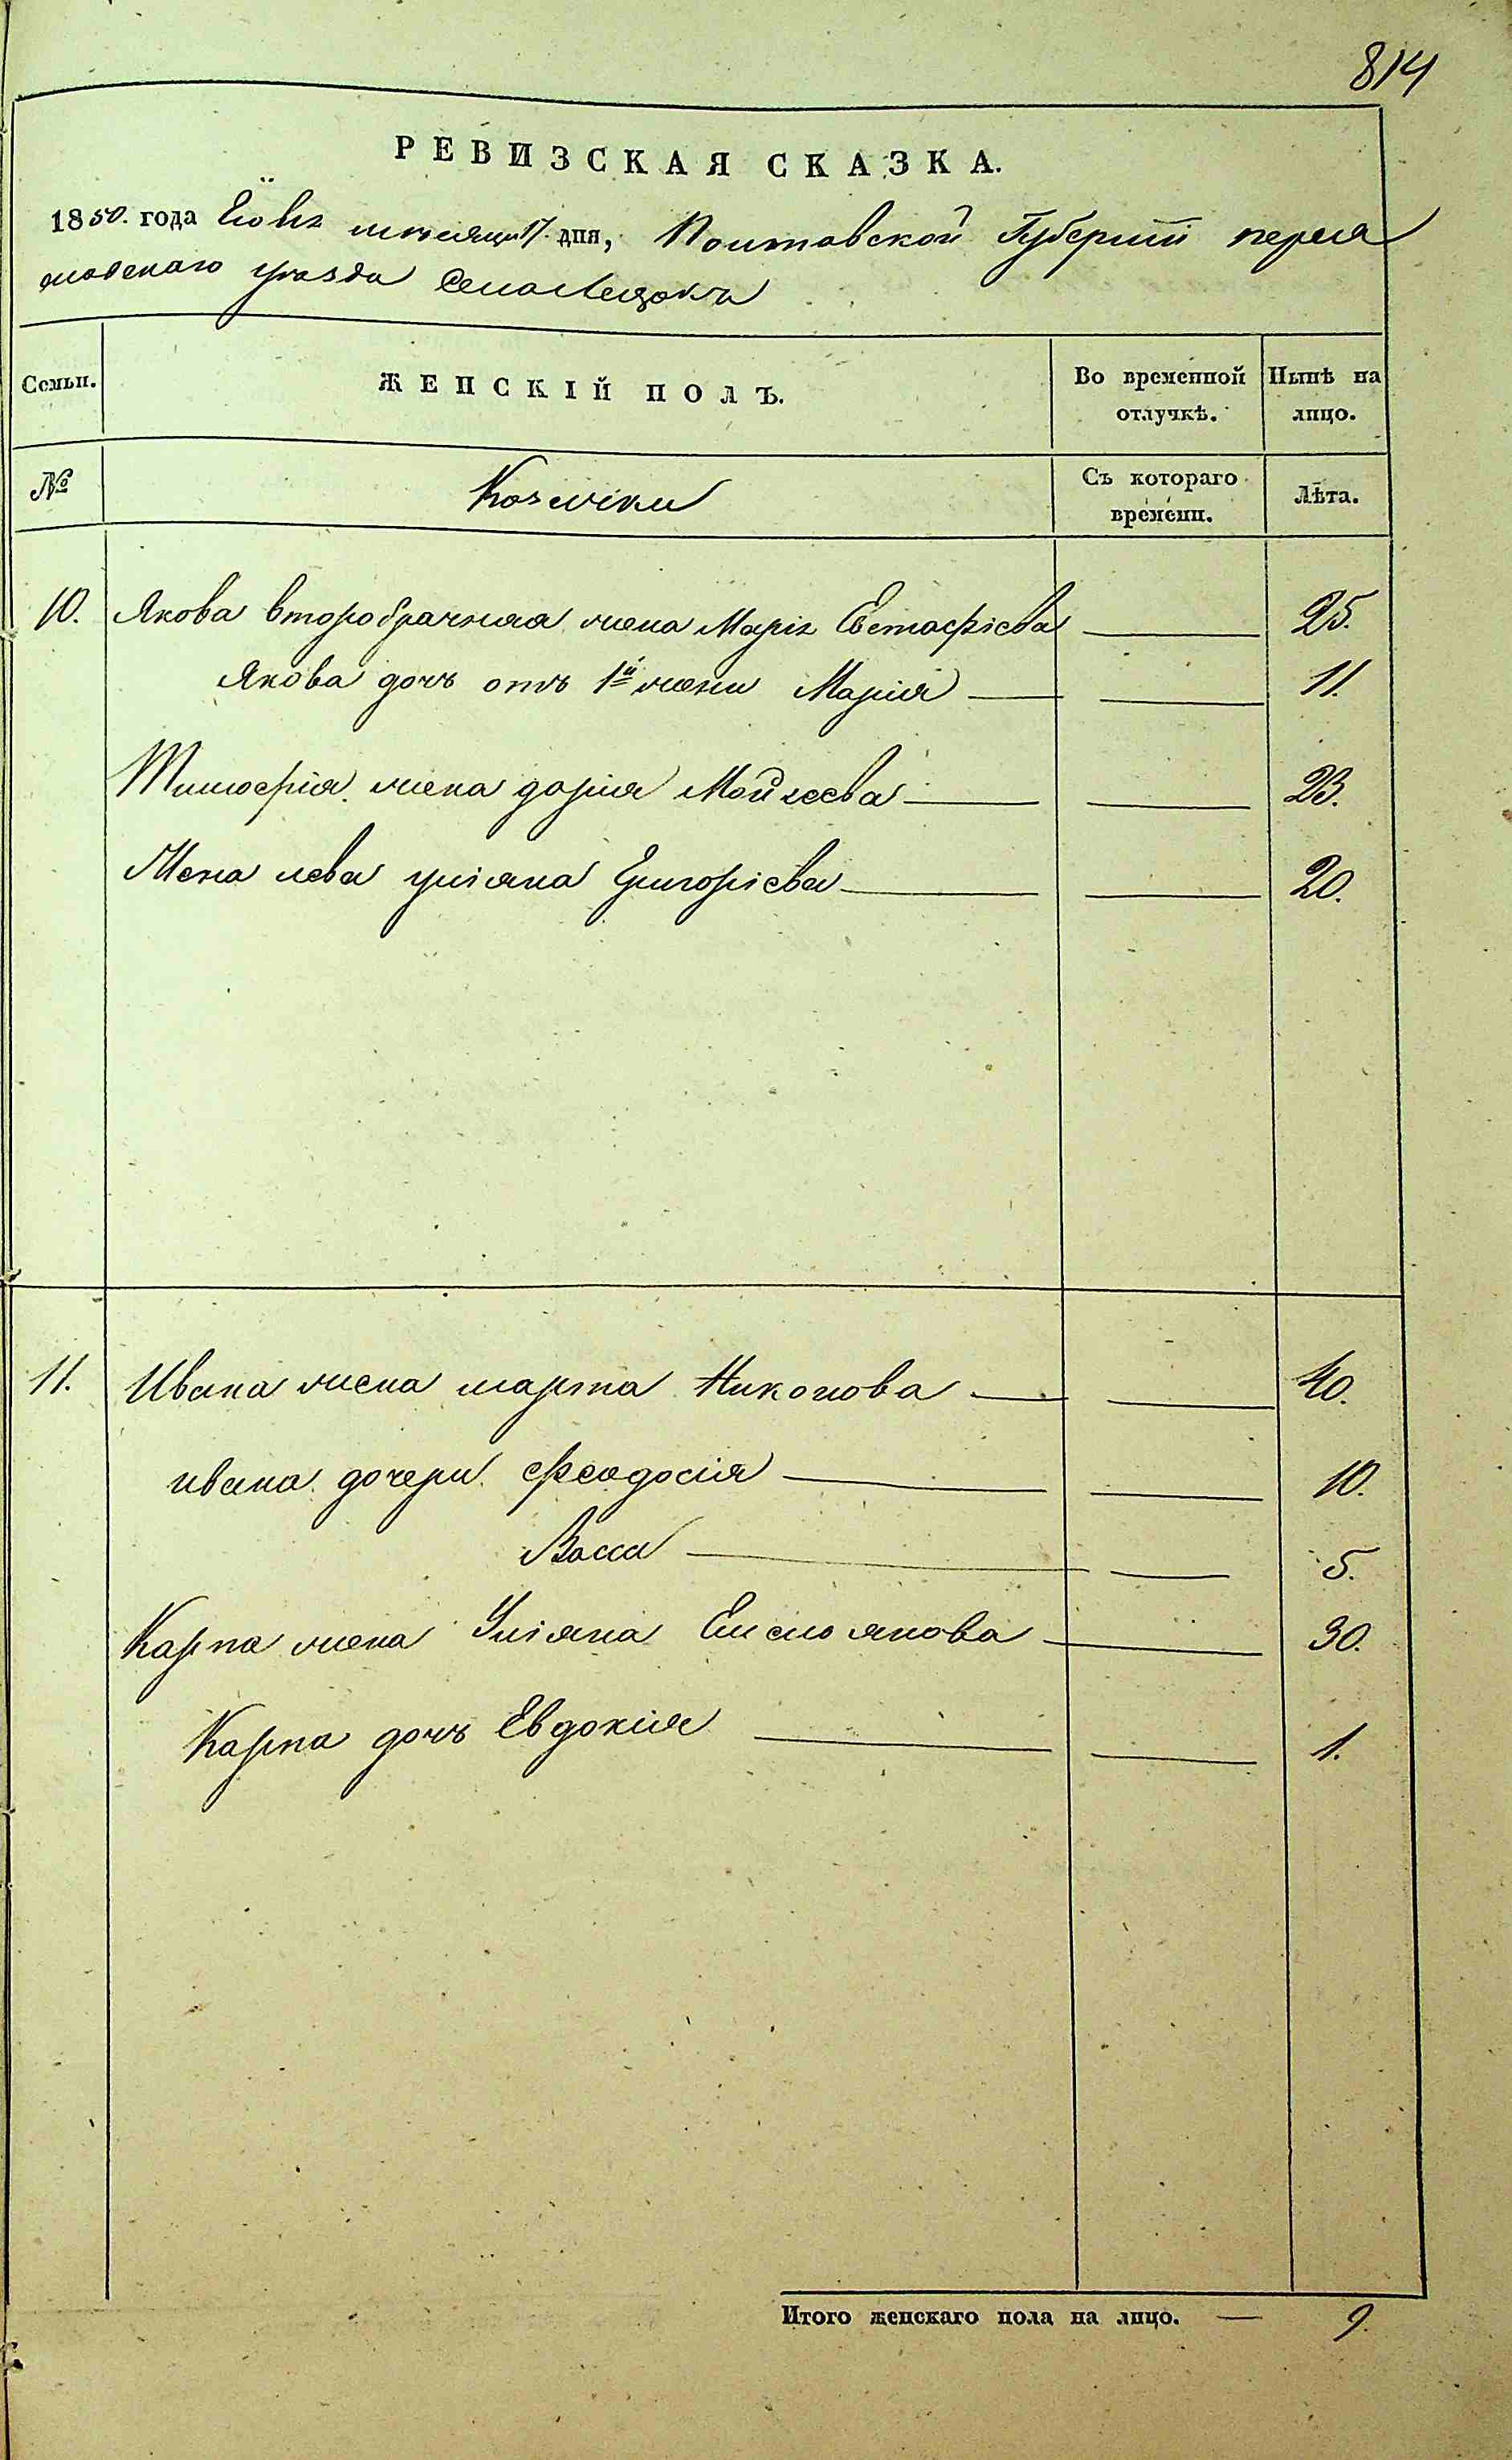 814
РЕВИЗСКАЯ СКАЗКА.
1850. года Іюня месяца 17. дня, Полтавской Губерніи перея
славскаго уезда Села Лецокъ
Семьи. ЖЕНСКІЙ ПОЛЪ. Во временной отлучкѣ. Нынѣ на лицо.
№ Козачки Съ котораго времени. Лѣта.
10. Якова второбрачная жена Марія Евстафіева 25.
Якова дочь отъ 1й жены Марія 11.
Тимофія жена дарія Мойсеева 23.
Жена лева уліяна Григоріева 20.
11. Ивана жена марта Никонова 40.
ивана дочери Феодосія 10.
Васса 5.
Карпа жена Уліяна 30.
Карпа дочь Евдокія 1.
Итого женскаго пола на лицо. — 9.